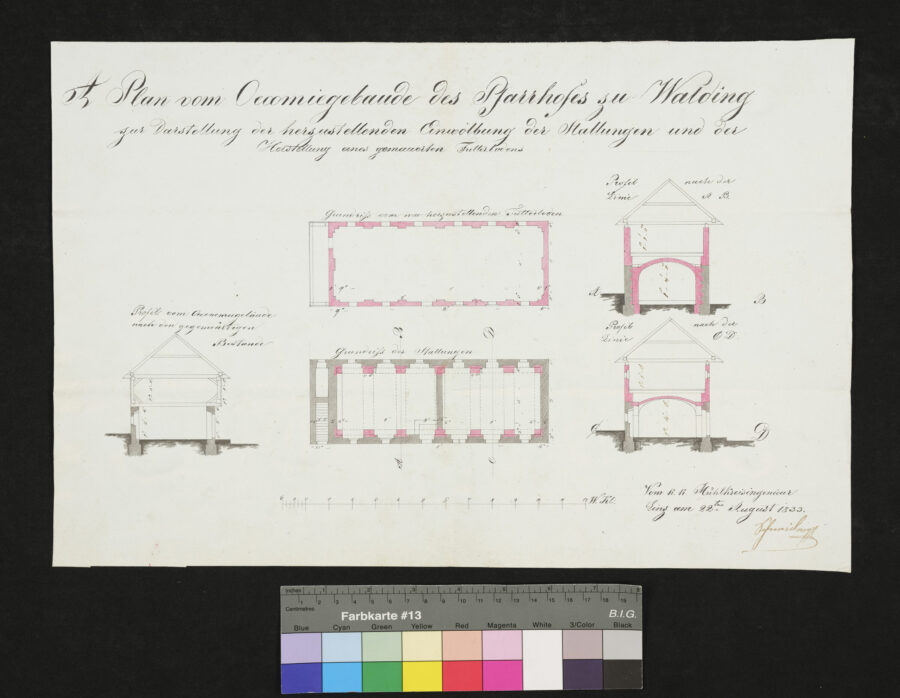 Plan vom Oecomiegebaude des Pfarrhofes zu Walding
zur Darstellung der herzustellenden Einwölbung der Stallungen und der
Herstellung eines gemauerten Futterbodens
Profil nach der
Linie A B.
Grundriß vom neu herzustellenden Futterboden
A B
Profil vom Oeconomiegebäude
nach den gegenwärtigen
Bestande
B D
Profil nach der
Linie C D.
Grundriß des Stallungen
C D
A C
W. Kl.
Vom k. k. Mühlkreisingenieur
Linz am 22ten August 1833.
Inches 1 2 3 4 5 6 7 8
Centimetres 1 2 3 4 5 6 7 8 9 10 11 12 13 14 15 16 17 18 19
Farbkarte #13 B.I.G.
Blue Cyan Green Yellow Red Magenta White 3/Color Black